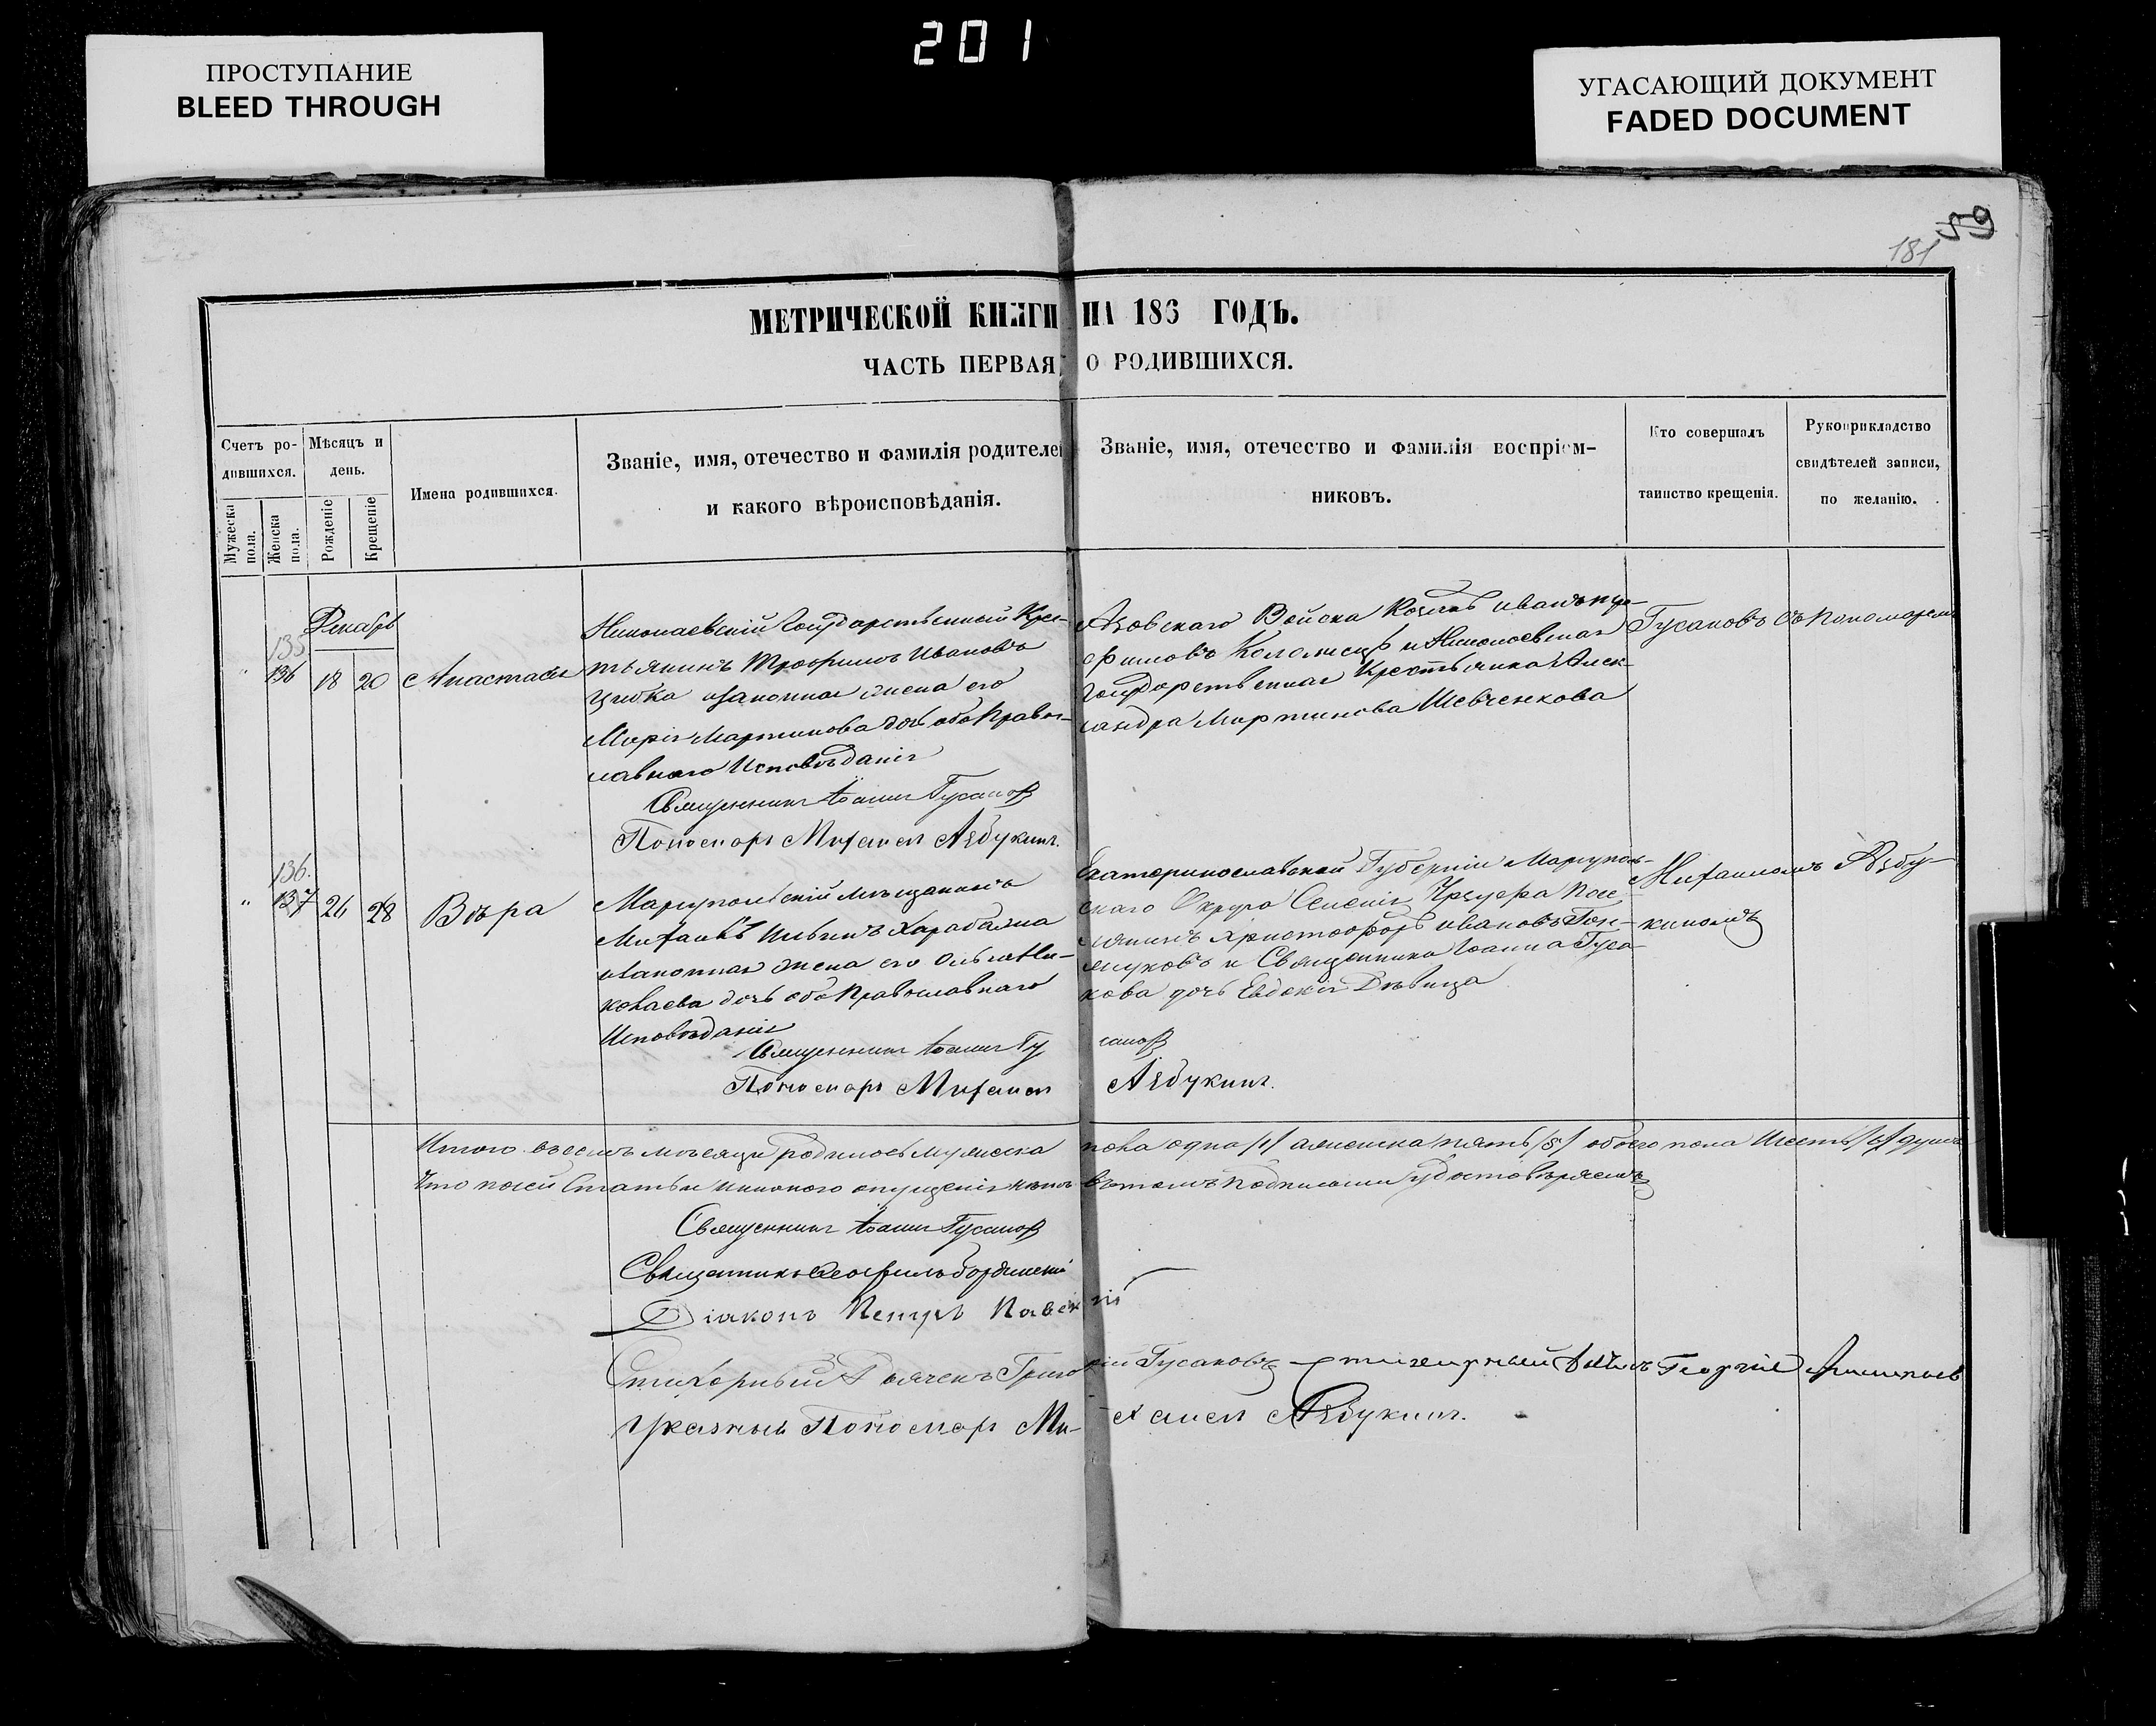 201
ПРОСТУПАНИЕ
BLEED THROUGH
УГАСАЮЩИЙ ДОКУМЕНТ
FADED DOCUMENT
59
181
МЕТРИЧЕСКОЙ КНИГИ НА 186 ГОДЪ.
ЧАСТЬ ПЕРВАЯ, О РОДИВШИХСЯ.
Счетъ ро-
дившихся.
Мужеска пола.
Женска пола.
Мѣсяцъ и
день.
Рожденіе
Крещеніе
Имена родившихся.
Званіе, имя, отечество и фамилія родителей
и какого вѣроисповѣданія.
Званіе, имя, отечество и фамилія воспріем-
никовъ.
Кто совершалъ
таинство крещенія.
Рукоприкладство
свидѣтелей записи,
по желанію.
Декабрь
135
" 136 18 20 Анастасія
Николаевскій Государственной Крес-
тьянинъ Трофимъ Ивановъ
законная жена его
Марія Мартинова дочь обо Правос-
лавнаго Исповѣданія
Священникъ Іоаннъ Гусаковъ
Пономарь Михаилъ Азбукинъ.
Азовскаго Войска Козакъ Иванъ
и Николаевская
Государственная Крестьянка Алек-
сандра Мартинова Шевченкова
Гусаковъ съ Пономаремъ
136.
" 137 26 28 Вѣра
Маріупольскій мѣщанинъ
Михаилъ Ильинъ Харабаджа
законная жена его Ольга Ни-
колаева дочь обо Православнаго
Исповѣданія
Священникъ Іоаннъ Гусаковъ
Пономарь Михаилъ Азбукинъ.
Екатеринославской Губерніи Маріуполь-
скаго Округа Селенія Чердакли Посе-
лянинъ Христофоръ Ивановъ
и Священника Іоанна Гуса-
кова дочь Евдокія Дѣвица
Михаиломъ Азбу-
кинымъ
Итого въ семъ мѣсяцѣ родилось мужеска пола одна /1/ а женска пять /5/ обоего пола Шесть /6/ душъ
Что по сей Статьи никакого опущенія нѣтъ въ томъ подписомъ удостовѣряемъ
Священникъ Іоаннъ Гусаковъ
Священникъ Ѳеофилъ
Діаконъ Петръ
Стихарный Дьячекъ Григорій Гусаковъ Стихарный Георгій
Указный Пономарь Михаилъ Азбукинъ.